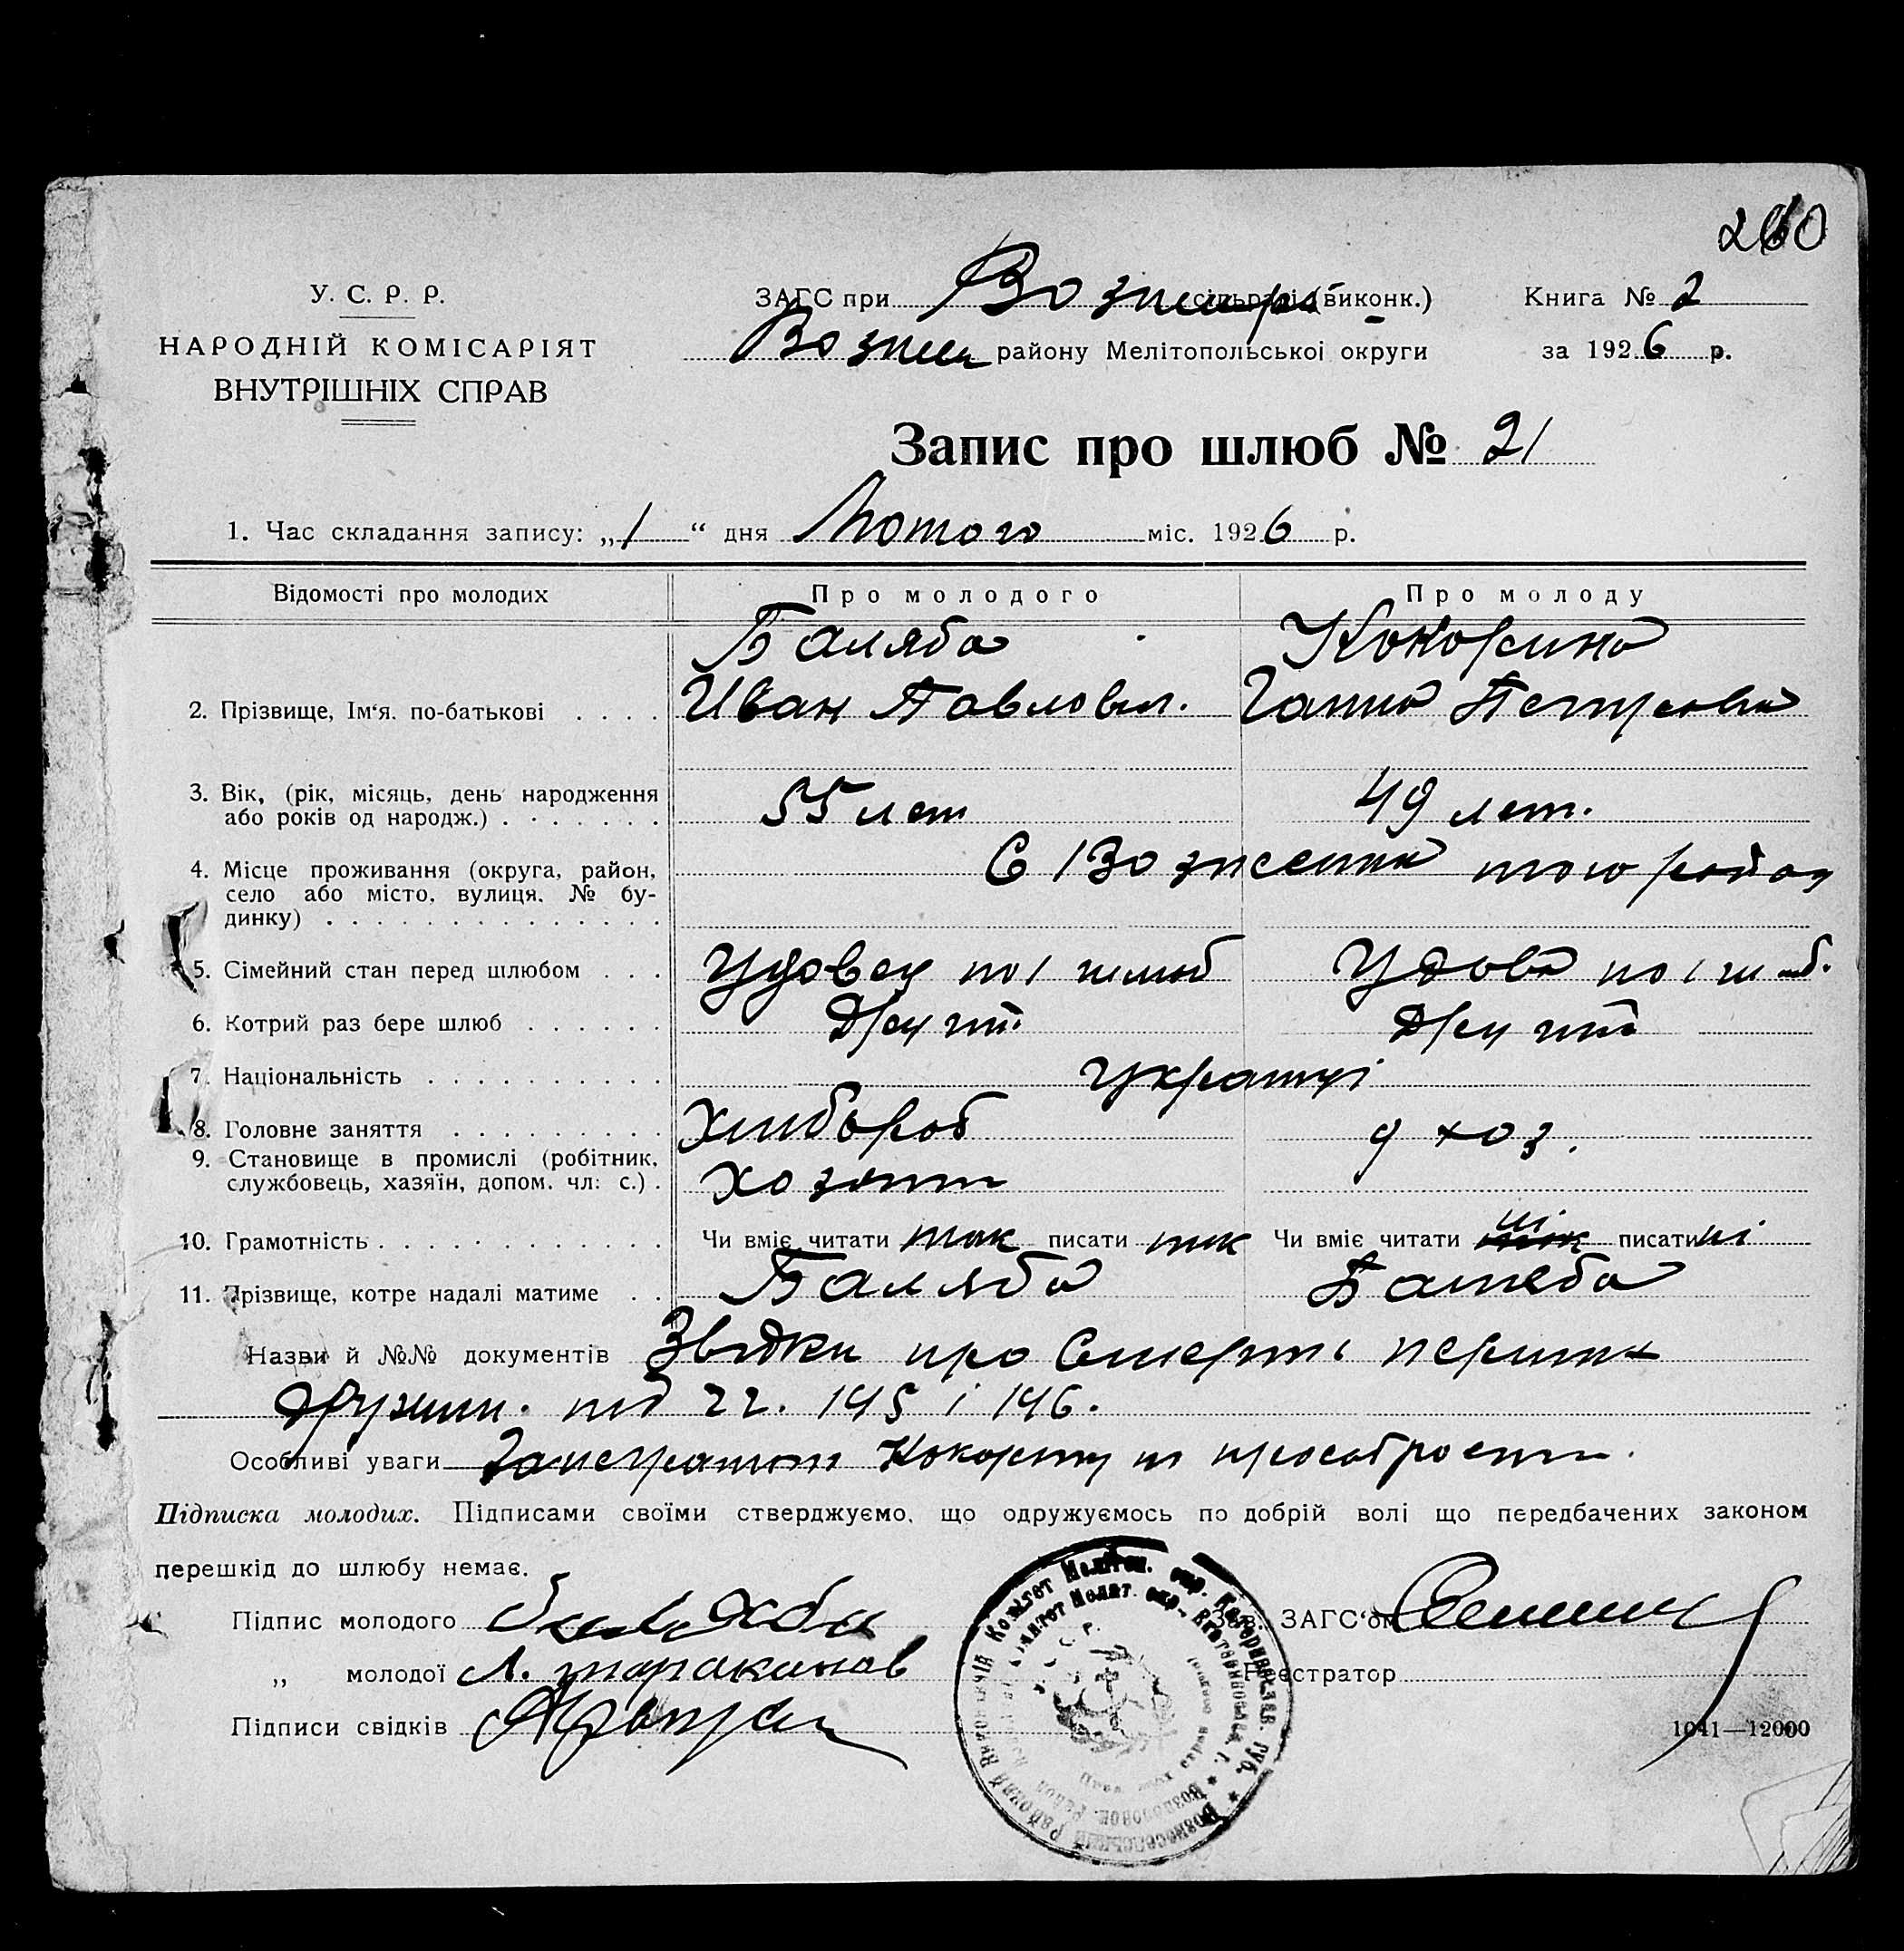 260
У. С. Р. Р.
НАРОДНІЙ КОМІСАРІЯТ
ВНУТРІШНІХ СПРАВ
ЗАГС при (виконк.)
Книга № 2
Вознес району Мелітопольської округи
за 1926 р.
Запис про шлюб № 21
1. Час складання запису: „1“ дня Лютого міс. 1926 р.
Відомості про молодих
Про молодого
Про молоду
Баляба
Кокорина
2. Прізвище, Ім‘я. по-батькові
Иван Павлович.
Ганна Петровна
3. Вік, (рік, місяць, день народження
або років од народж.)
55 лет
49 лет.
4. Місце проживання (округа, район,
село або місто, вулиця, № бу-
динку)
С Вознесенка того району
5. Сімейний стан перед шлюбом
Удовец по 1 шлюб
Удова по 1 шлюб.
6. Котрий раз бере шлюб
Другий
Другий
7. Національність
Українці
8. Головне заняття
Хлибороб
д хоз.
9. Становище в промислі (робітник,
службовець, хазяїн, допом. чл. с.)
Хозяин
10. Грамотність
Чи вміє читати так писати так
Чи вміє читати ні писати ні
11. Прізвище, котре надалі матиме
Баляба
Баляба
Назви й №№ документів
про Смерть
145 і 146.
Особливі уваги Кокорину
Підписка молодих. Підписами своїми стверджуємо, що одружуємось по добрій волі що передбачених законом
перешкід до шлюбу немає.
Підпис молодого Баляба
Зав. ЗАГС‘ом
„ молодої Л. Тараканов
Реєстратор
Підписи свідків
1041—12000